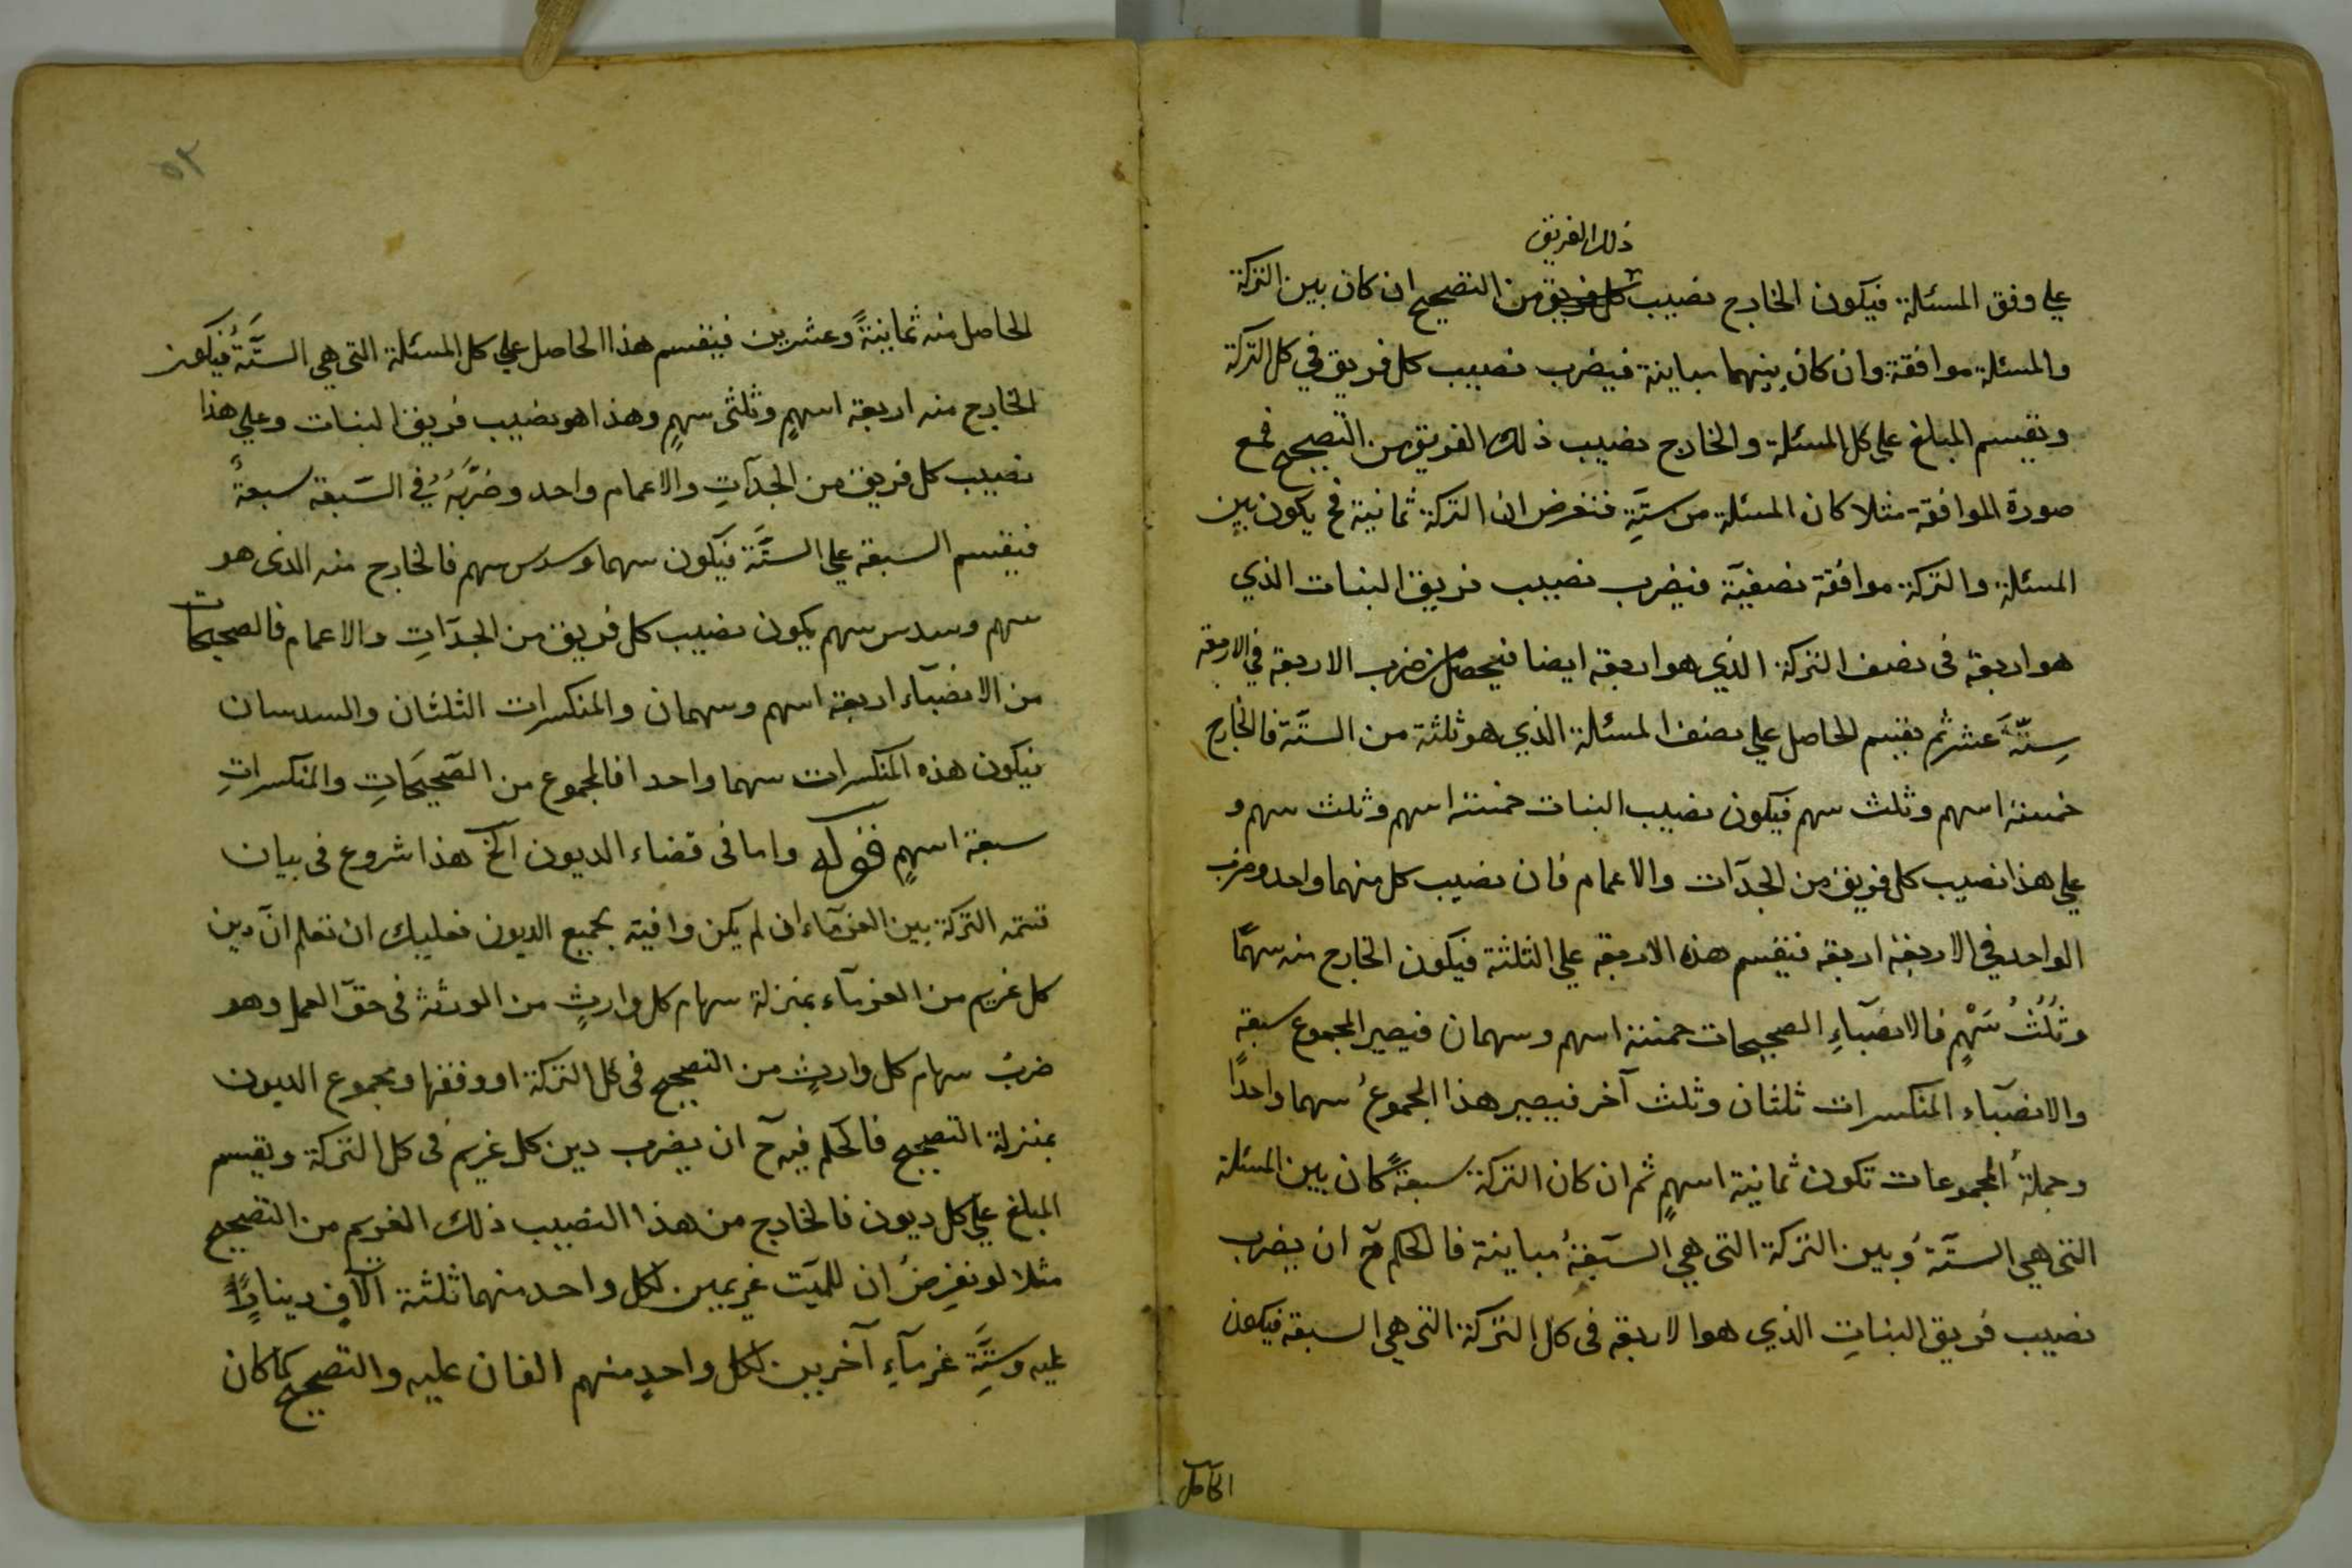 ذلك الفريق
علي وفق المسئلة فيكون الخارج نصيب كل فريق من التصحيح ان كان بين التركة
والمسئلة موافقة وان كان بينهما مباينة فيضرب نصيب كل فريق في كل التركة
ويقسم المبلغ علي كل المسئلة والخارج نصيب ذلك الفريق من التصحيح فمع
صورة الموافقة مثلا كان المسئلة من ستَّةِ فنفرض ان التركة ثمانية فح يكون بين
المسئلة والتركة موافقة نصفيّة فيضرب نصيب فريق البنات الذي
هو اربعة في نصف التركة الذي هو اربعة ايضا فيحصل من ضرب الاربعة في الاربعة
سِتَّةَ عشر ثم يقسم الحاصل علي نصف المسئلة الذي هو ثلثة من الستَّة فالخارج
خمسة اسهم وثلث سهم فيكون نصيب البنات خمسة اسهم وثلث سهم و
علي هذا نصيب كل فريق من الجدّات والاعمام فان نصيب كل منهما واحد وضرب
الواحد في الاربعة اربعة فيقسم هذه الاربعة علي الثلثة فيكون الخارج منه سهمًا
وثُلُثُ سَهْمٍ فالانصبآءِ الصحيحات خمسة اسهم وسهمان فيصير المجموع سبعة
والانصبآء المنكسرات ثلثان وثلث آخر فيصير هذا المجموعُ سهما واحدًا
وجملةُ المجموعات تكون ثمانية اسهمٍ ثم ان كان التركة سبعةً كان بين المسئلة
التي هي الستَّةُ وبين التركة التي هي السَّبعةُ مباينة فالحكم ح ان يضرب
نصيب فريق البناتِ الذي هو الاربعة في كل التركة التي هي السبعة فيكون
الحاصل
الحاصل منه ثمانيةً وعشرين فينقسم هذا الحاصل علي كل المسئلة التي هي الستَّةُ فيكون
الخارج منه اربعة اسهمٍ وثلثي سهمٍ وهذا هو نصيب فريق البنات وعلي هذا
نصيب كل فريق من الجدّاتِ والاعمام واحد وضَرْبُهُ في السَّبعة سبعةٌ
فيقسم السبعة علي الستَّة فيكون سهما وسدس سهم فالخارج منه الذي هو
سهم وسدس سهم يكون نصيب كل فريق من الجدّاتِ والاعمام فالصحيحات
من الانصبآء اربعة اسهم وسهمان والمنكسرات الثلثان والسدسان
فيكون هذه المنكسرات سهما واحدا فالمجموع من الصحيحَاتِ والمنكسراتِ
سبعة اسهمٍ قوله واما في قضاء الديون الخ هذا شروع في بيان
قسمة التركة بين الغرمآء ان لم يكن وافية بجميع الديون فعليك ان تعلم انّ دين
كل غريم من الغرمآء بمنزلة سهام كل وارثٍ من الورثة في حقّ العمل وهو
ضربُ سهام كل وارثٍ من التصحيح في كل التركة او وفقها ومجموع الديون
بمنزلة التصحيح فالحكم فيه ح ان يضرب دين كل غريم في كل التركة ويقسم
المبلغ علي كل ديون فالخارج من هذا النصيب ذلك الغريم من التصحيح
مثلا لو نفرِضُ ان للميّت غريمين لكل واحد منهما ثلثة آلافٍ دينارًا
عليه وستَّةِ غرمآءِ آخرين لكل واحدٍ منهم الفان عليه والتصحيح كما كان